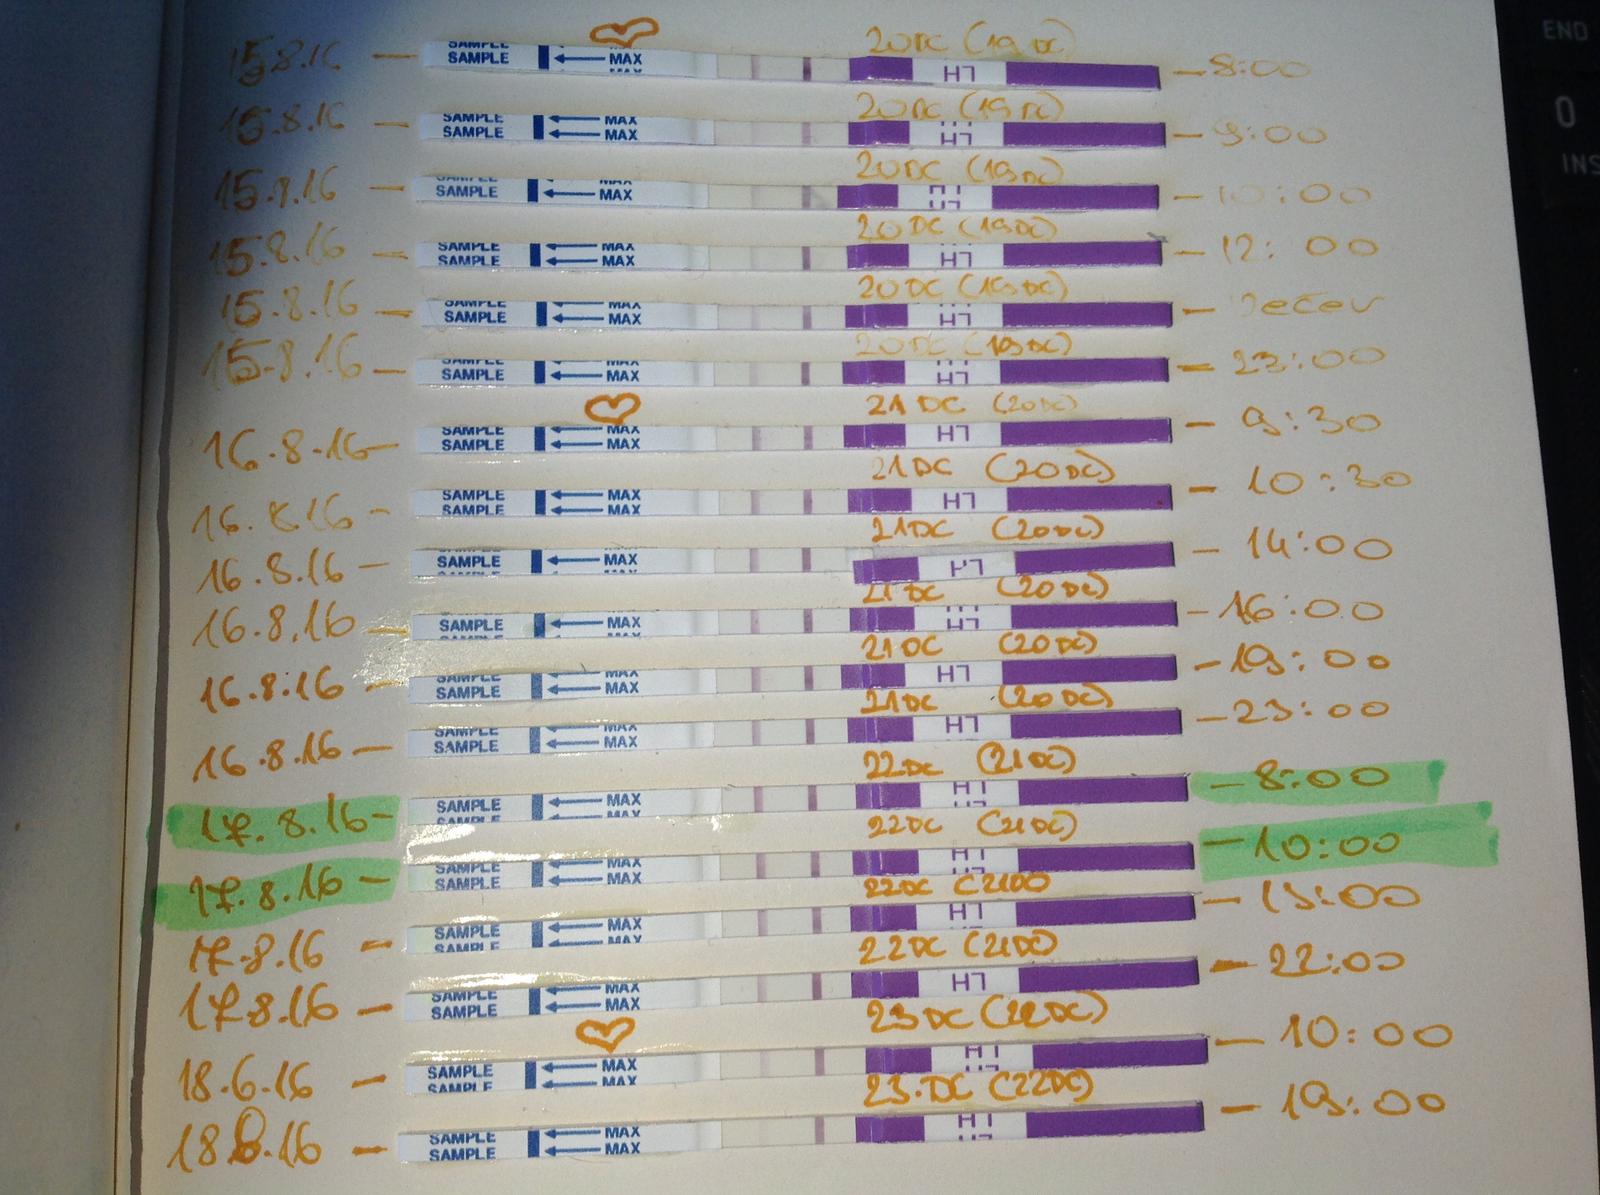 15.8.16 — SAMPLE SAMPLE MAX 20DC (19DC) — 8:00
15.8.16 — SAMPLE SAMPLE MAX MAX 20DC (19DC) — 9:00
15.8.16 — SAMPLE MAX MAX 20DC (19DC) — 10:00
15.8.16 — SAMPLE SAMPLE MAX MAX 20DC (19DC) — 12:00
15.8.16 — SAMPLE SAMPLE MAX MAX 20DC (19DC) — večer
15.8.16 — SAMPLE SAMPLE MAX MAX 20DC (19DC) — 23:00
16.8.16 — SAMPLE SAMPLE MAX MAX 21DC (20DC) — 9:30
16.8.16 — SAMPLE SAMPLE MAX MAX 21DC (20DC) — 10:30
16.8.16 — SAMPLE MAX 21DC (20DC) — 14:00
16.8.16 — SAMPLE MAX 21DC (20DC) — 16:00
16.8.16 — SAMPLE SAMPLE MAX MAX 21DC (20DC) — 19:00
16.8.16 — SAMPLE SAMPLE MAX MAX 21DC (20DC) — 23:00
17.8.16 — SAMPLE SAMPLE MAX MAX 22DC (21DC) — 8:00
17.8.16 — SAMPLE SAMPLE MAX MAX 22DC (21DC) — 10:00
17.8.16 — SAMPLE SAMPLE MAX MAX 22DC (21DC) — 13:00
17.8.16 — SAMPLE SAMPLE MAX MAX 22DC (21DC) — 22:00
18.6.16 — SAMPLE SAMPLE MAX MAX 23DC (22DC) — 10:00
18.8.16 — SAMPLE SAMPLE MAX MAX 23.DC (22DC) — 19:00
END
0
INS